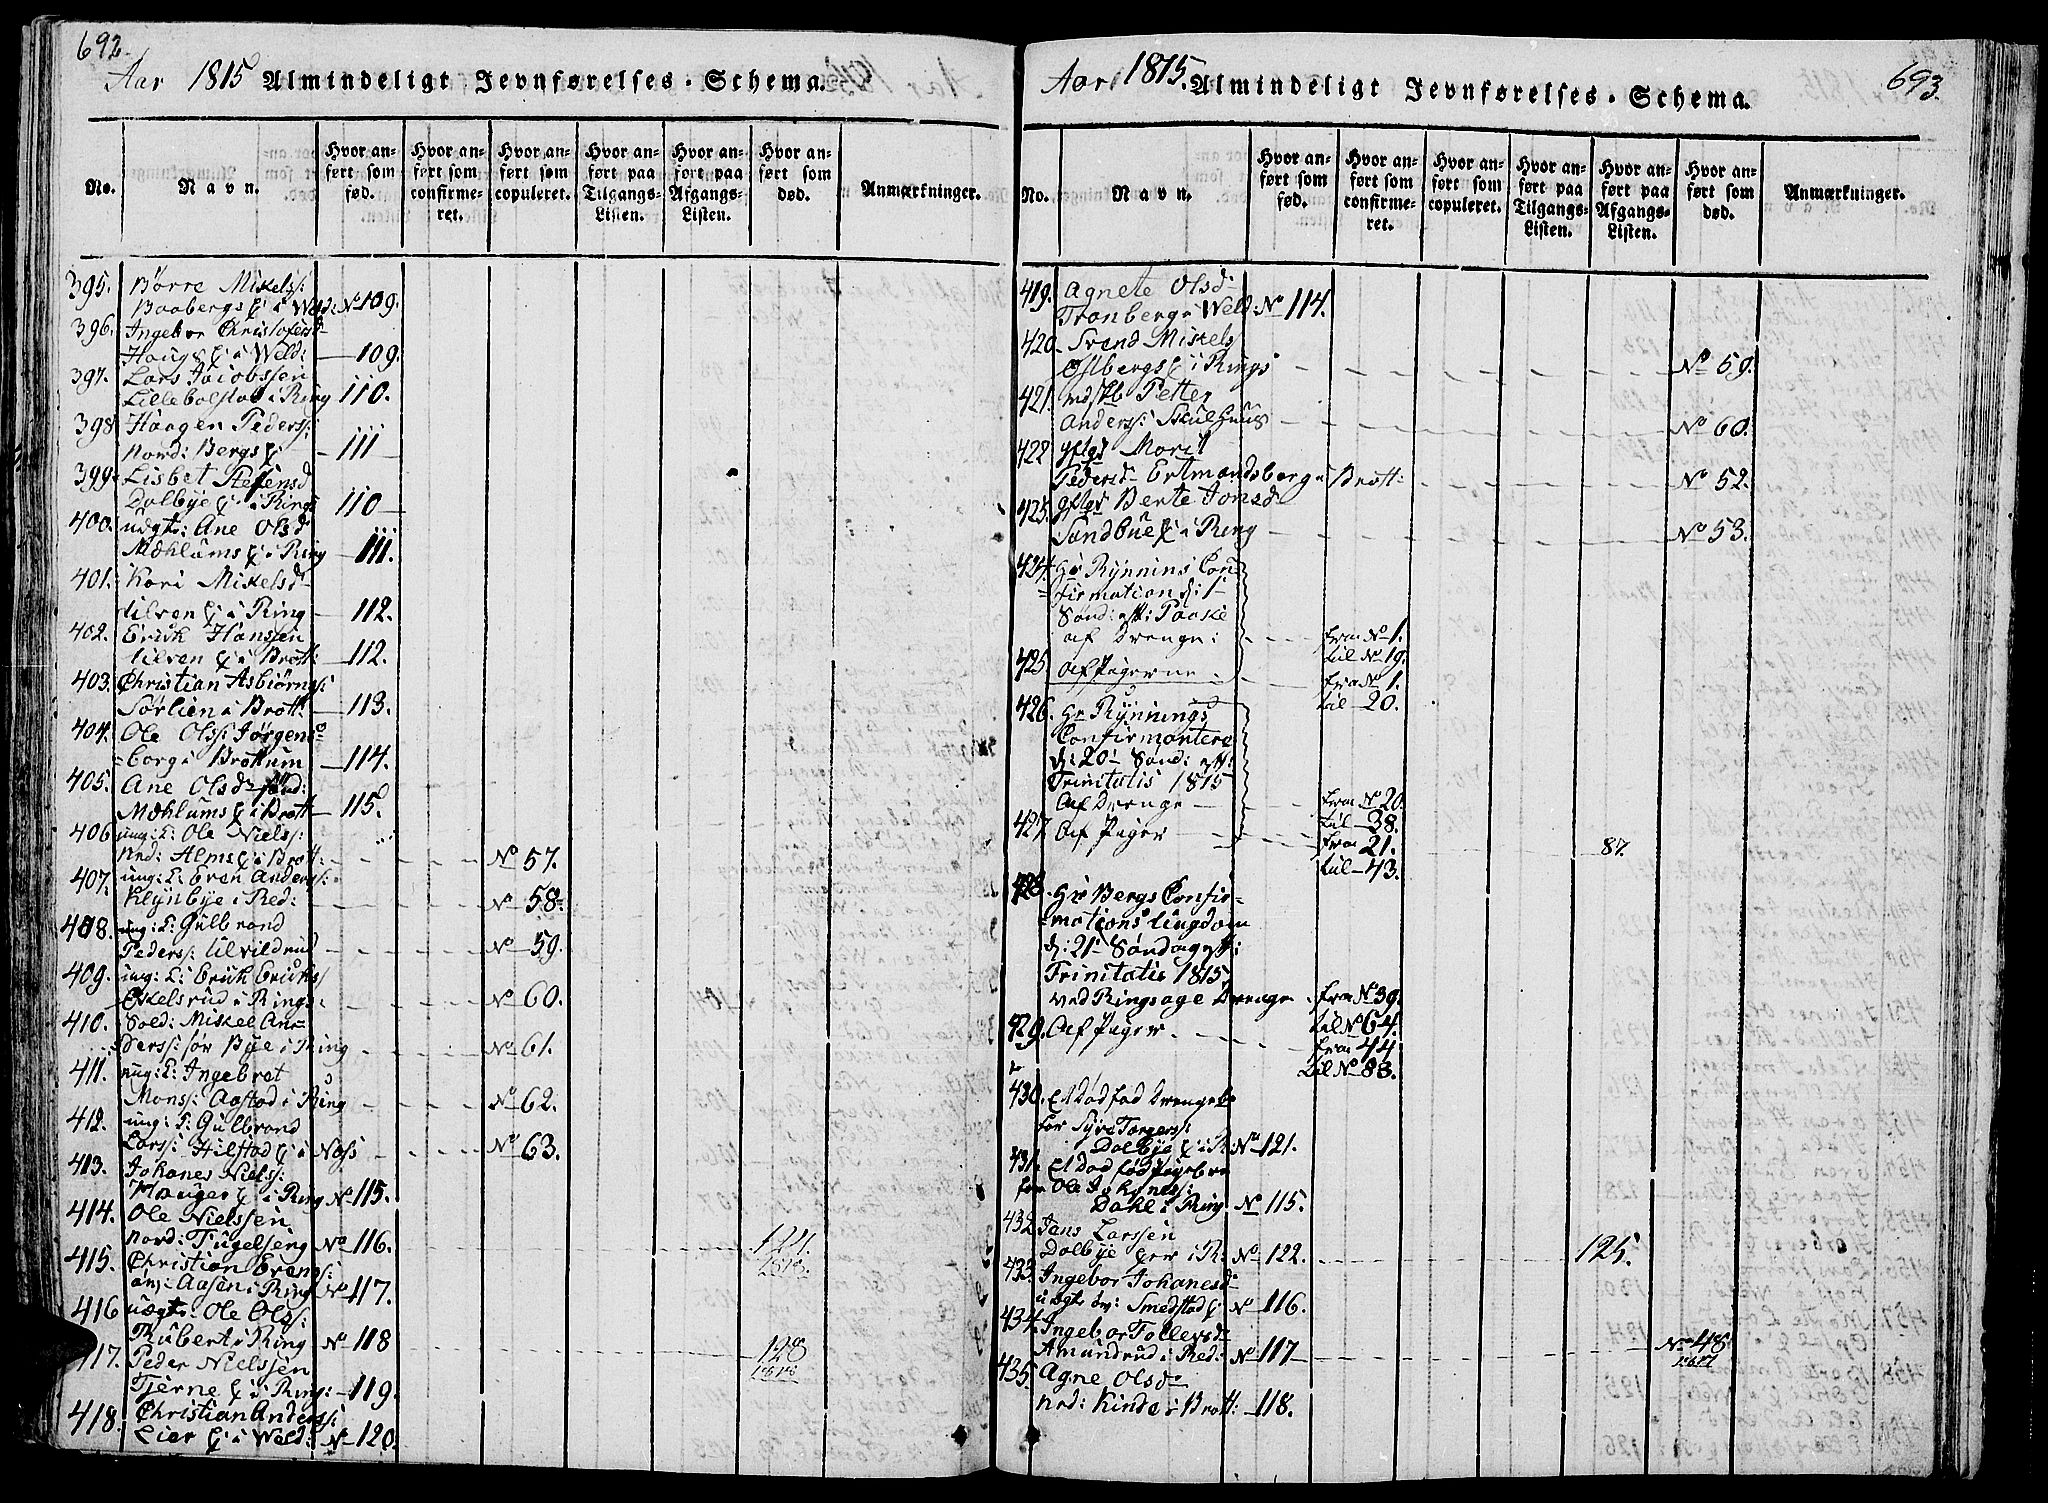 692.
Aar 1815 Almindeligt Jevnførelses-Schema.
No. Navn. Hvor anført som fød. Hvor anført som confirmeret. Hvor anført som copuleret. Hvor anført paa Tilgangs-Listen. Hvor anført paa Afgangs-Listen. Hvor anført som død. Anmærkninger.
395. Børre Mikelss:
Baabergs i Weld: No 109.
396. Ingebor Christofersd
Haugs i Weld: — 109.
397. Lars Jacobssen
Lillebolstad i Ring — 110.
398 Haagen Pederss:
Nord: Bergs — 111
399. Lisbet Stefensd
Dolbye i Rings 110
400. uægt: Ane Olsd
Mæhlums i Ring — 111.
401. Kari Mikelsd
Ulven i Ring — 112.
402. Erick Hanssen
Ulven i Brott: — 112.
403. Christian Asbiørnss:
Sørlien i Brott: — 113.
404. Ole Olss: Jørgens
=borg i Brottum — 114.
405. Ane Olsd
Mæhlums i Brott — 115.
406 ung: K: Ole Nielss:
Nrd: Alms i Brott: No 57.
407. ung: K: Even Anderss:
Klynbye i Red: No 58
408. ung: K: Gulbrand
Pederss: Ulvildrud No 59.
409. ung: K: Erick Ericks
Eskelsrud i Rings: No 60.
410. Sold: Mikel An=
derss: sør Bye i Ring No 61.
411. ung: K: Ingebret
Monss: Aastad i Ring No 62.
412. ung: K: Gulbrand
Larss: Hilstad i Næs No 63.
413. Johanes Nielss:
Hauger i Ring No 115.
414. Ole Nielssen
Nord: Tugelseng No 116. 121.
415. Christian Evenss:
øv: Aasen i Ring No 117.
416 uægt: Ole Olss:
Rubert i Ring No 118
417. Peder Nielssen 128
Tjerne i Ring: — 119.
418. Christian Anderss:
Lier i Weld: No 120.
693.
Aar 1815. Almindeligt Jevnførelses-Schema.
No. Navn. Hvor anført som fød. Hvor anført som confirmeret. Hvor anført som copuleret. Hvor anført paa Tilgangs-Listen. Hvor anført paa Afgangs-Listen. Hvor anført som død. Anmærkninger.
419. Agnete Olsd
Tranberg i Weld: No 114.
420. Svend Mikels
Østbergs i Rings No 59.
421. Petter
Anderss: Skulhuus No 60.
422 Marit
Pedersd Ertmandsberg i Brott: No 52.
423. Berte Jomsd
Sandbue i Ring No 53.
424. Hr Rynnins Con
=firmation d: 1
Sønd: eft: Paaske
af Drenge: fra No 1.
til No 19.
425 Af Piger fra No 1.
til — 20.
426. Hr Rynnings
Confirmantere
d: 20 Sønd: eft:
Trinitatis 1815
Af Drenge — fra No 20.
til — 38.
427. Af Piger fra 21. 87.
til — 43.
428. Hr Bergs Confir=
=mations Ungdom
d: 21 Søndag eft:
Trinitatis 1815,
ved Ringsage Drenge fra No 39.
til No 64.
429. Af Piger fra 44
til No 83.
430. Et Dødfød Drengeb
for Syver Torgerss:
Dolbye i R: No 121.
431. Et Dødfød Pigebrn
for Ole Johaness:
Dahl i Ring No 115.
432 Jens Larssen
Dolbye i R: No 122. 125.
433. Ingebor Johanesd
uægt øv: Smedstad No 116.
434. Ingebor Tollevsd
Amundrud i Red: No 117 No 48
435. Agne Olsd
Nrd: Kinde i Brott: — 118.